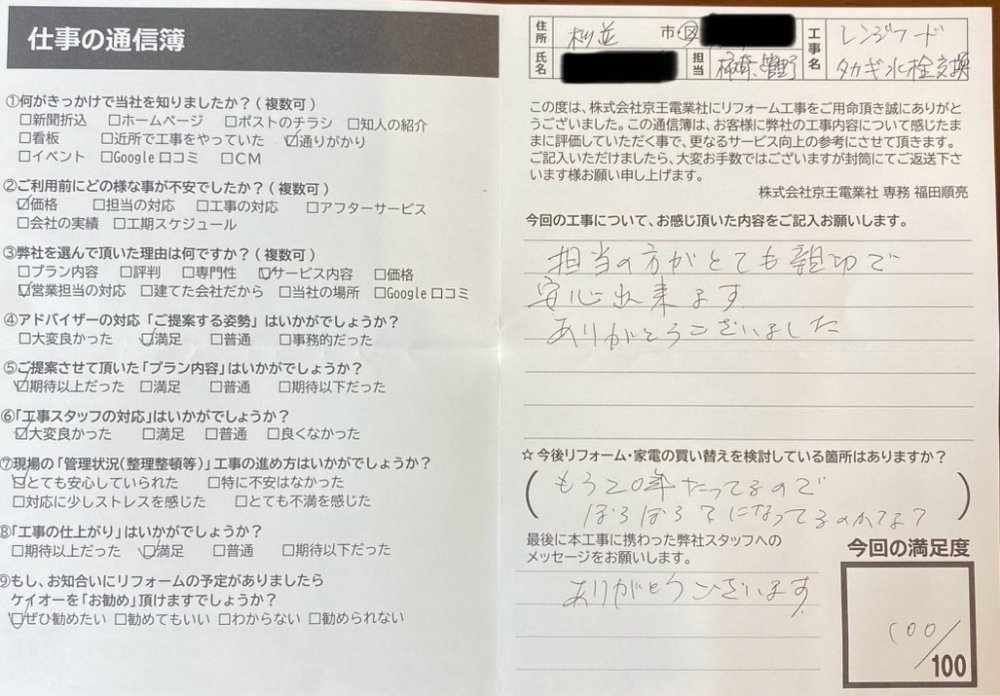 仕事の通信簿
①何がきっかけで当社を知りましたか？(複数可)
□新聞折込 □ホームページ □ポストのチラシ □知人の紹介
□看板 □近所で工事をやっていた ☑通りがかり
□イベント □Google口コミ □CM
②ご利用前にどの様な事が不安でしたか？(複数可)
☑価格 □担当の対応 □工事の対応 □アフターサービス
□会社の実績 □工期スケジュール
③弊社を選んで頂いた理由は何ですか？(複数可)
□プラン内容 □評判 □専門性 ☑サービス内容 □価格
☑営業担当の対応 □建てた会社だから □当社の場所 □Google口コミ
④アドバイザーの対応「ご提案する姿勢」はいかがでしょうか？
□大変良かった ☑満足 □普通 □事務的だった
⑤ご提案させて頂いた「プラン内容」はいかがでしょうか？
☑期待以上だった □満足 □普通 □期待以下だった
⑥「工事スタッフの対応」はいかがでしょうか？
☑大変良かった □満足 □普通 □良くなかった
⑦現場の「管理状況(整理整頓等)」工事の進め方はいかがでしょうか？
☑とても安心していられた □特に不安はなかった
□対応に少しストレスを感じた □とても不満を感じた
⑧「工事の仕上がり」はいかがでしょうか？
□期待以上だった ☑満足 □普通 □期待以下だった
⑨もし、お知合いにリフォームの予定がありましたら
ケイオーを「お勧め」頂けますでしょうか？
☑ぜひ勧めたい □勧めてもいい □わからない □勧められない
住所 杉並 市・区
氏名 担当
工事名 レンジフード
タカギ水栓交換
この度は、株式会社京王電業社にリフォーム工事をご用命頂き誠にありがと
うございました。この通信簿は、お客様に弊社の工事内容について感じたま
まに評価していただく事で、更なるサービス向上の参考にさせて頂きます。
ご記入いただけましたら、大変お手数ではございますが封筒にてご返送下さ
います様お願い申し上げます。
株式会社京王電業社 専務 福田順亮
今回の工事について、お感じ頂いた内容をご記入お願いします。
担当の方がとても親切で
安心出来ます
ありがとうございました
☆今後リフォーム・家電の買い替えを検討している箇所はありますか？
(もう20年たってるので
ぼろぼろ?になってるのかな?)
最後に本工事に携わった弊社スタッフへの
メッセージをお願いします。
ありがとうございます
今回の満足度
100/100